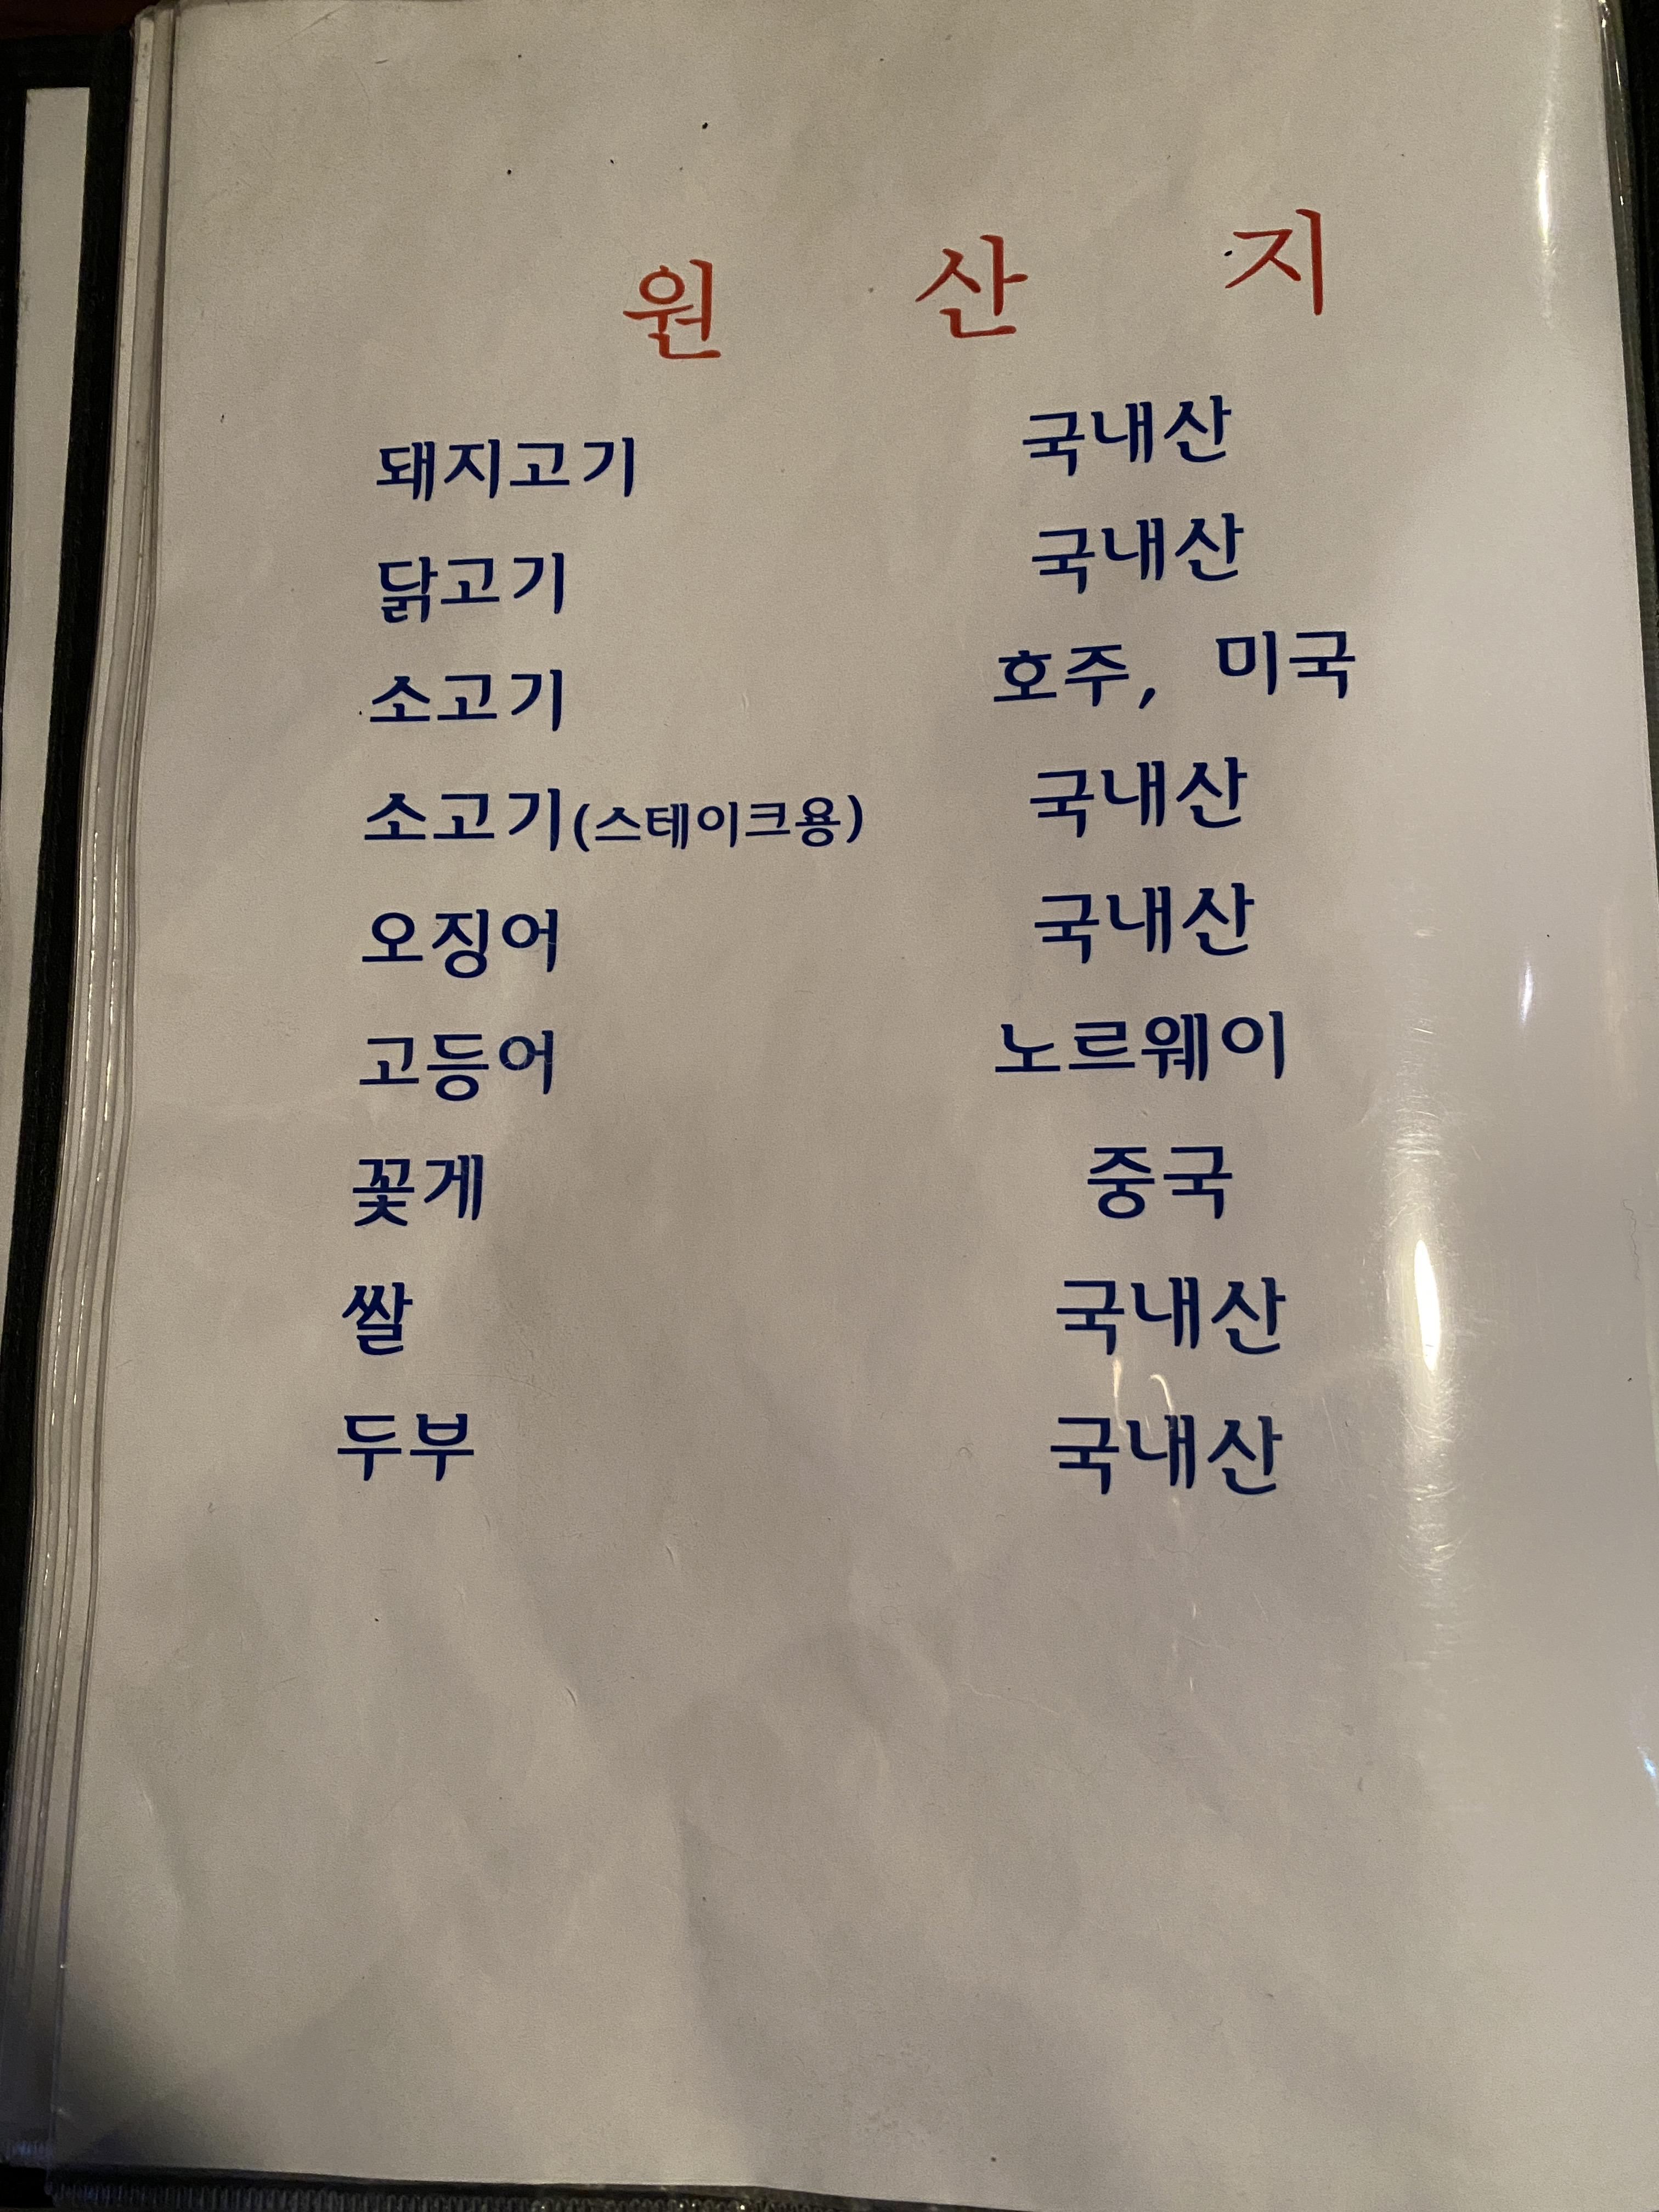 원 산 지
돼지고기 국내산
닭고기 국내산
소고기 호주, 미국
소고기(스테이크용) 국내산
오징어 국내산
고등어 노르웨이
꽃게 중국
쌀 국내산
두부 국내산